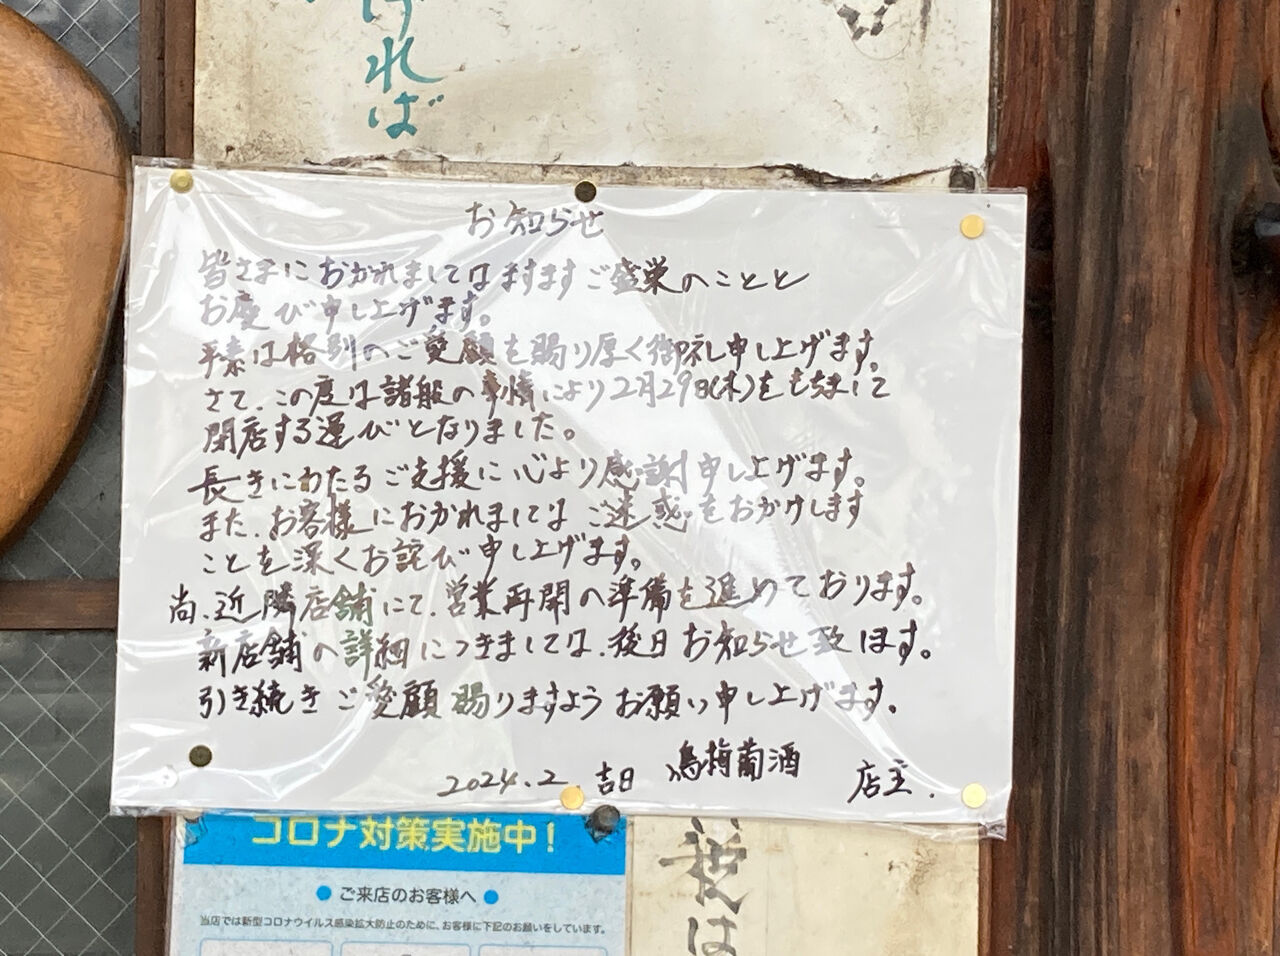 ければ
お知らせ
皆さまにおかれましてはますますご盛栄のことと
お慶び申し上げます。
平素は格別のご愛顧を賜り厚く御礼申し上げます。
さて、この度は諸般の事情により2月29日(木)をもちまして
閉店する運びとなりました。
長きにわたるご支援に心より感謝申し上げます。
また、お客様におかれましてはご迷惑をおかけします
ことを深くお詫び申し上げます。
尚、近隣店舗にて、営業再開の準備を進めております。
新店舗の詳細につきましては、後日お知らせ致します。
引き続きご愛顧賜りますようお願い申し上げます。
2024.2.吉日 鳥梅葡酒 店主.
コロナ対策実施中!
●ご来店のお客様へ●
当店では新型コロナウイルス感染拡大防止のために、お客様に下記のお願いをしています。
は